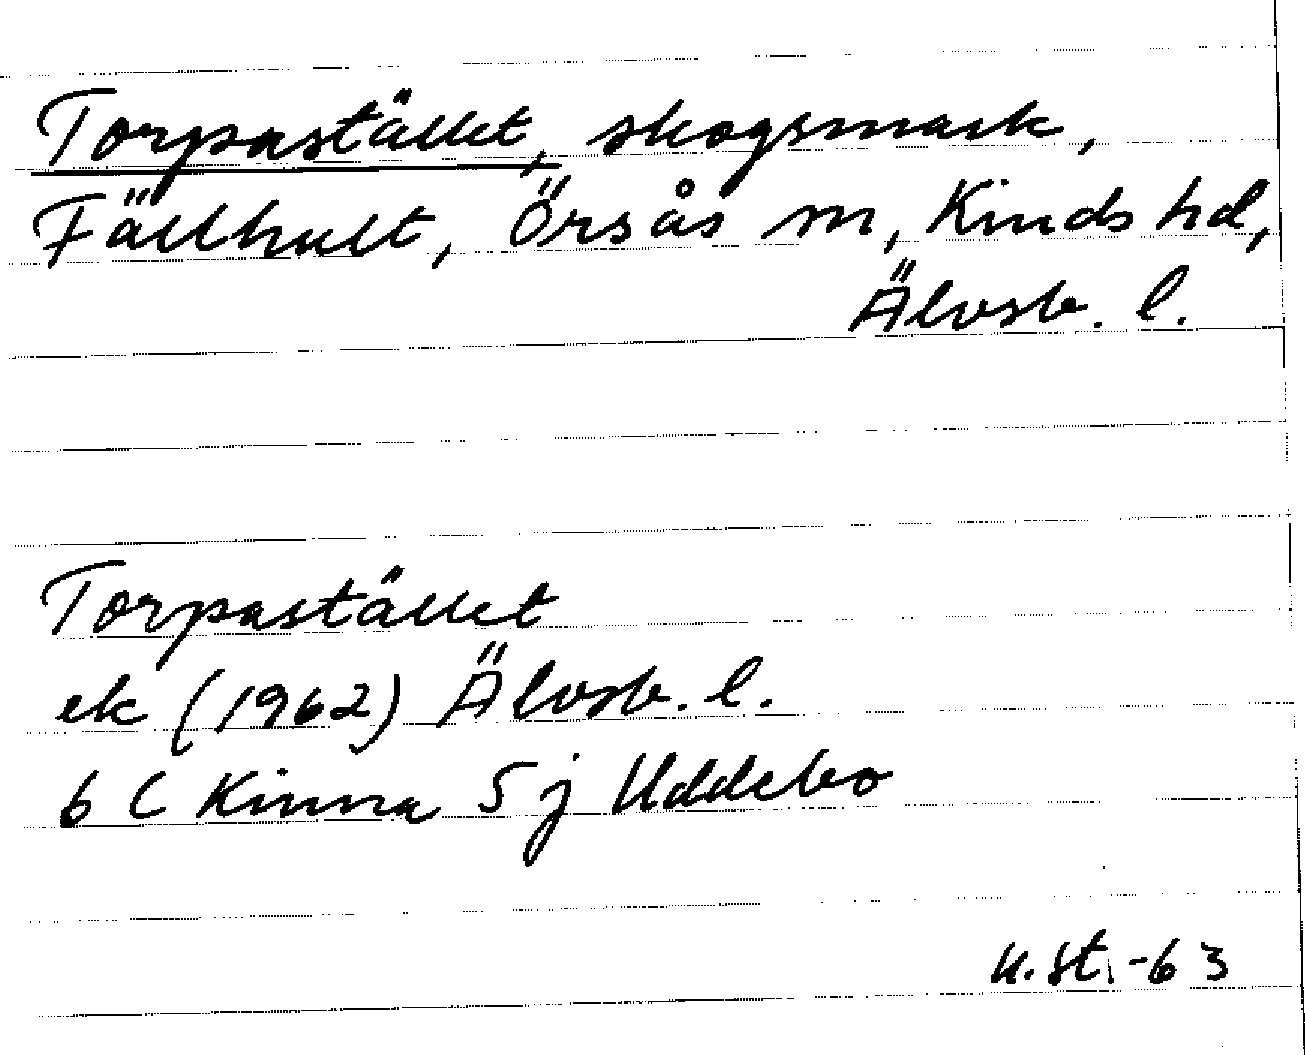 Torpastället, skogsmark,
Fällhult, Örsås sn, Kinds hd,
Älvsb. l.
Torpastället
ek (1962) Älvsb. l.
6 C Kinna 5 j Uddebo
u.st. -63